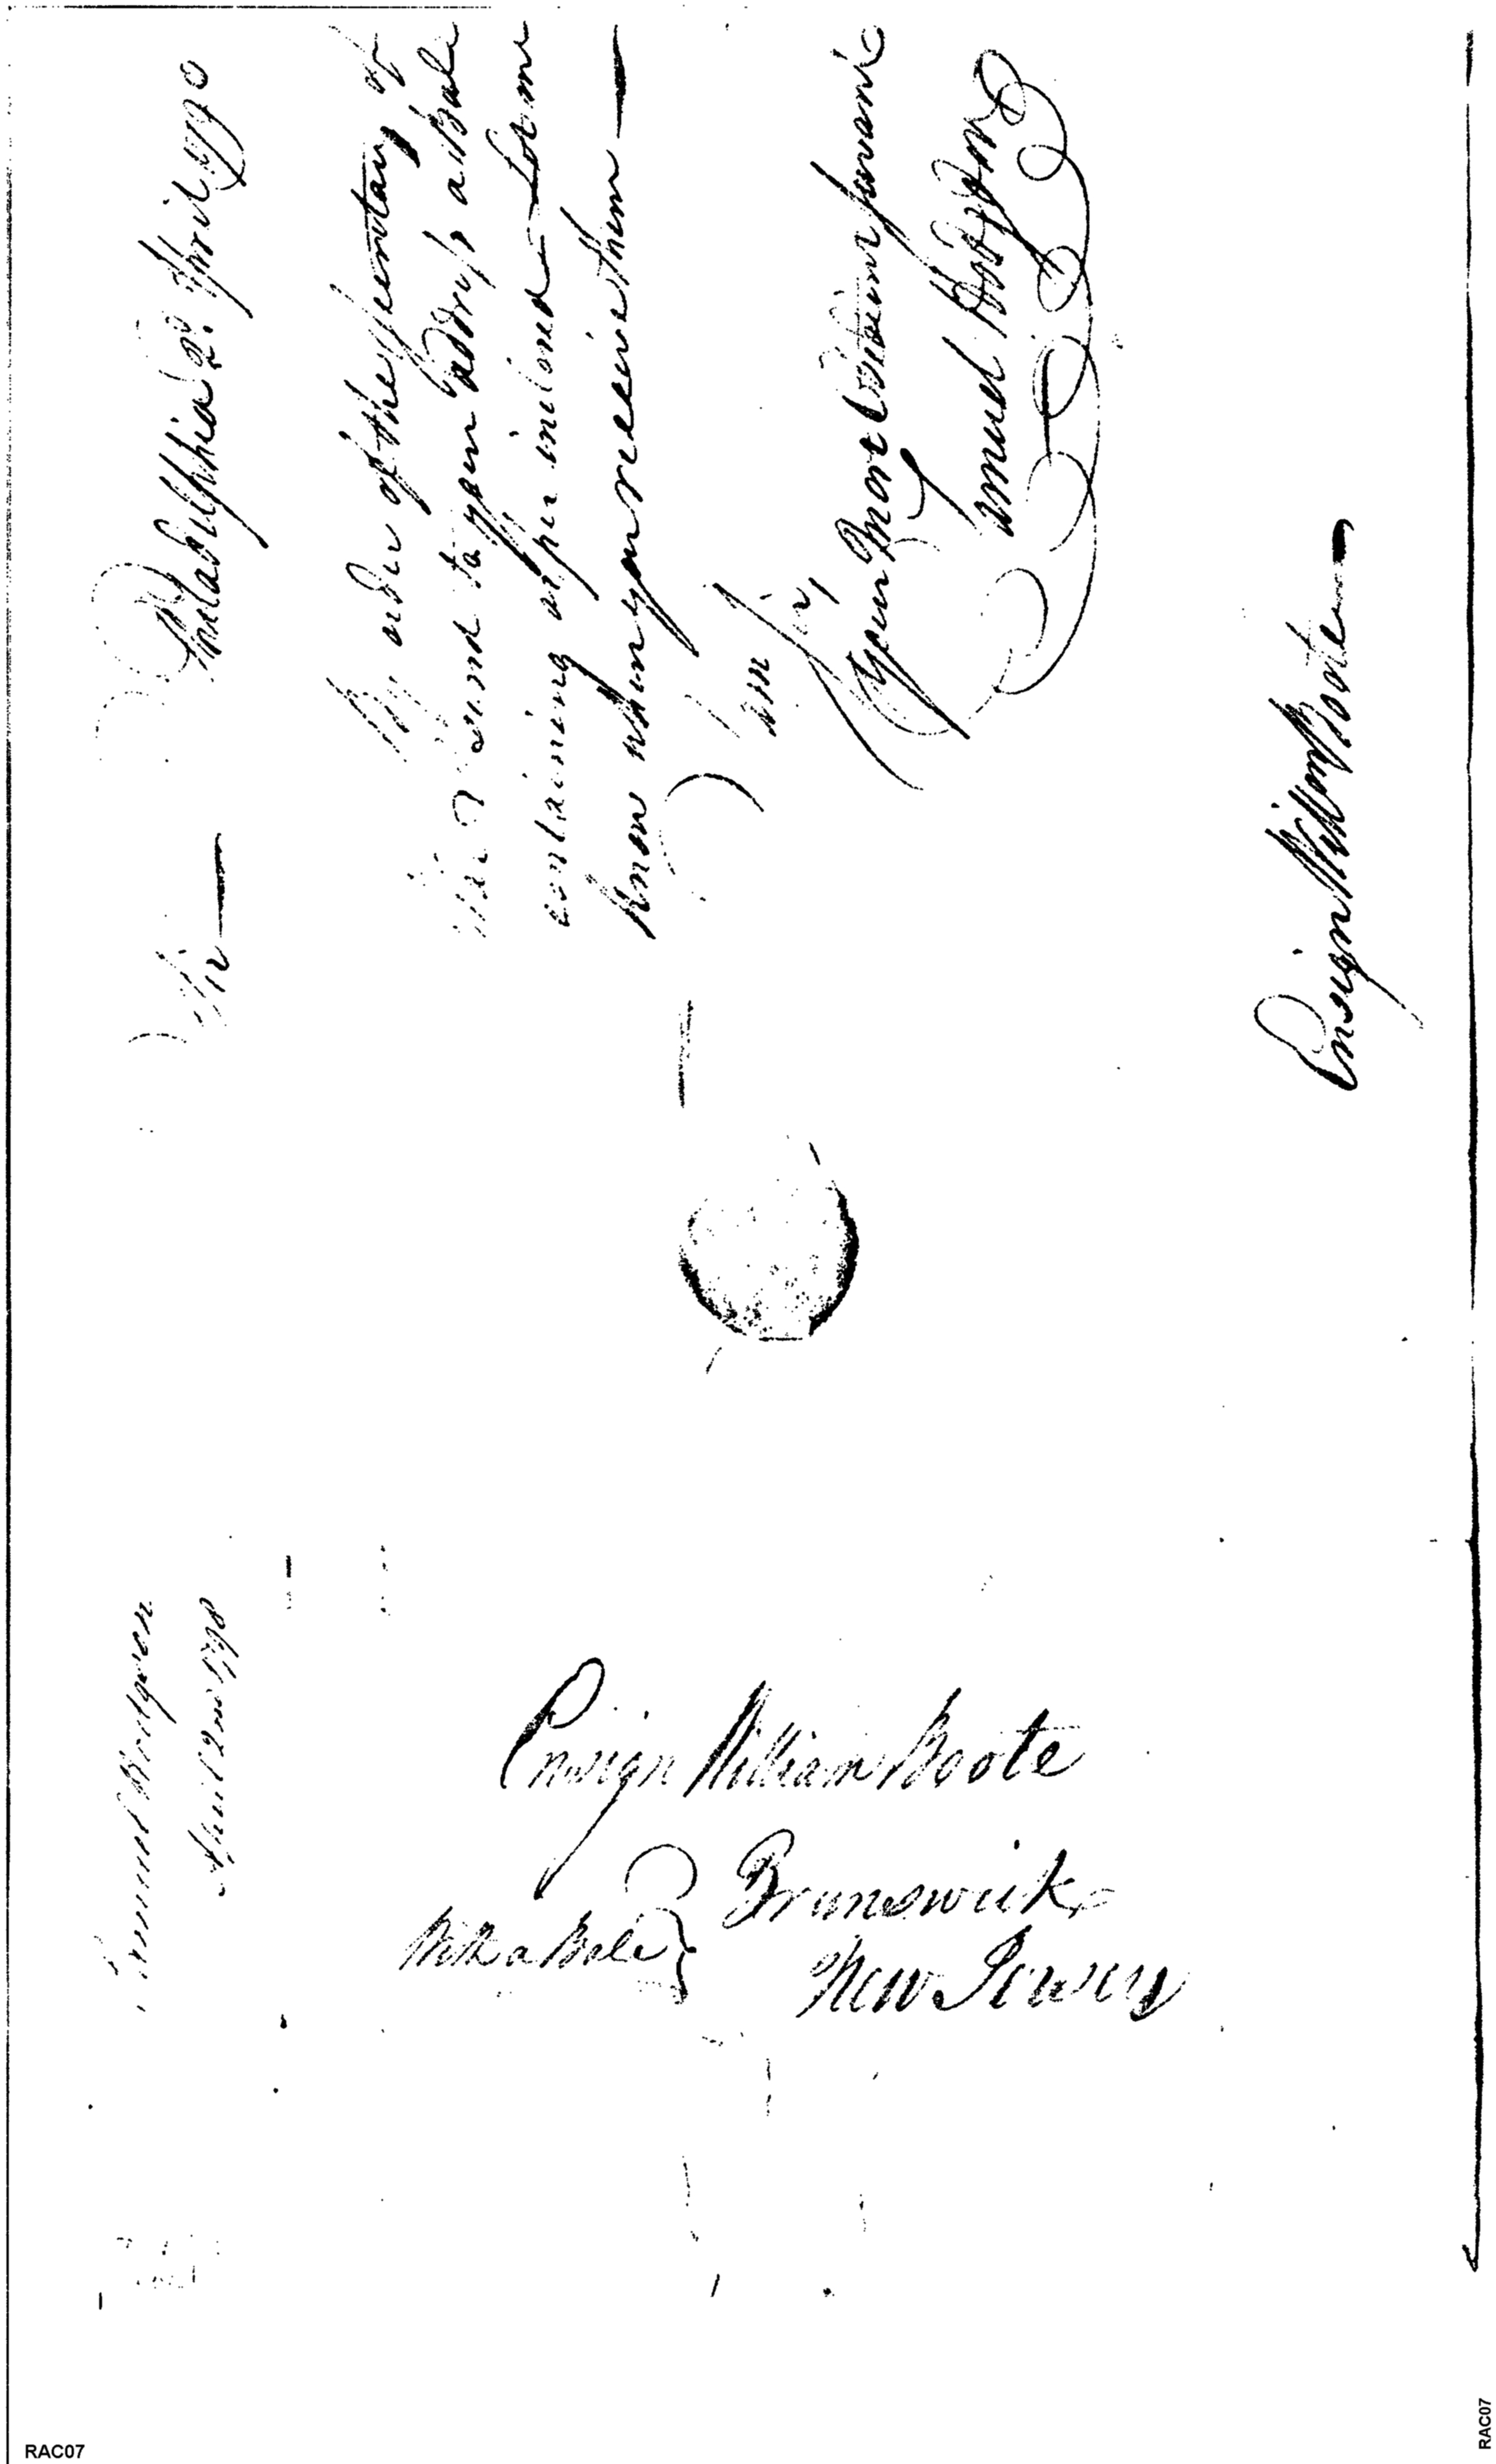 Philadelphia 2d. April 1790
Sir
By order of the Secretary of
War I send to your address a Bale
containing as per inclosed Let me
know when you receive them
I am
Sir,
Your Most Obedient Servant
Samuel Hodgdon
Ensign William Boote
Samuel Hodgdon
April 2nd 1790
Ensign William Boote
Brunswick
With a Bale
New Jersey
RAC07
RAC07